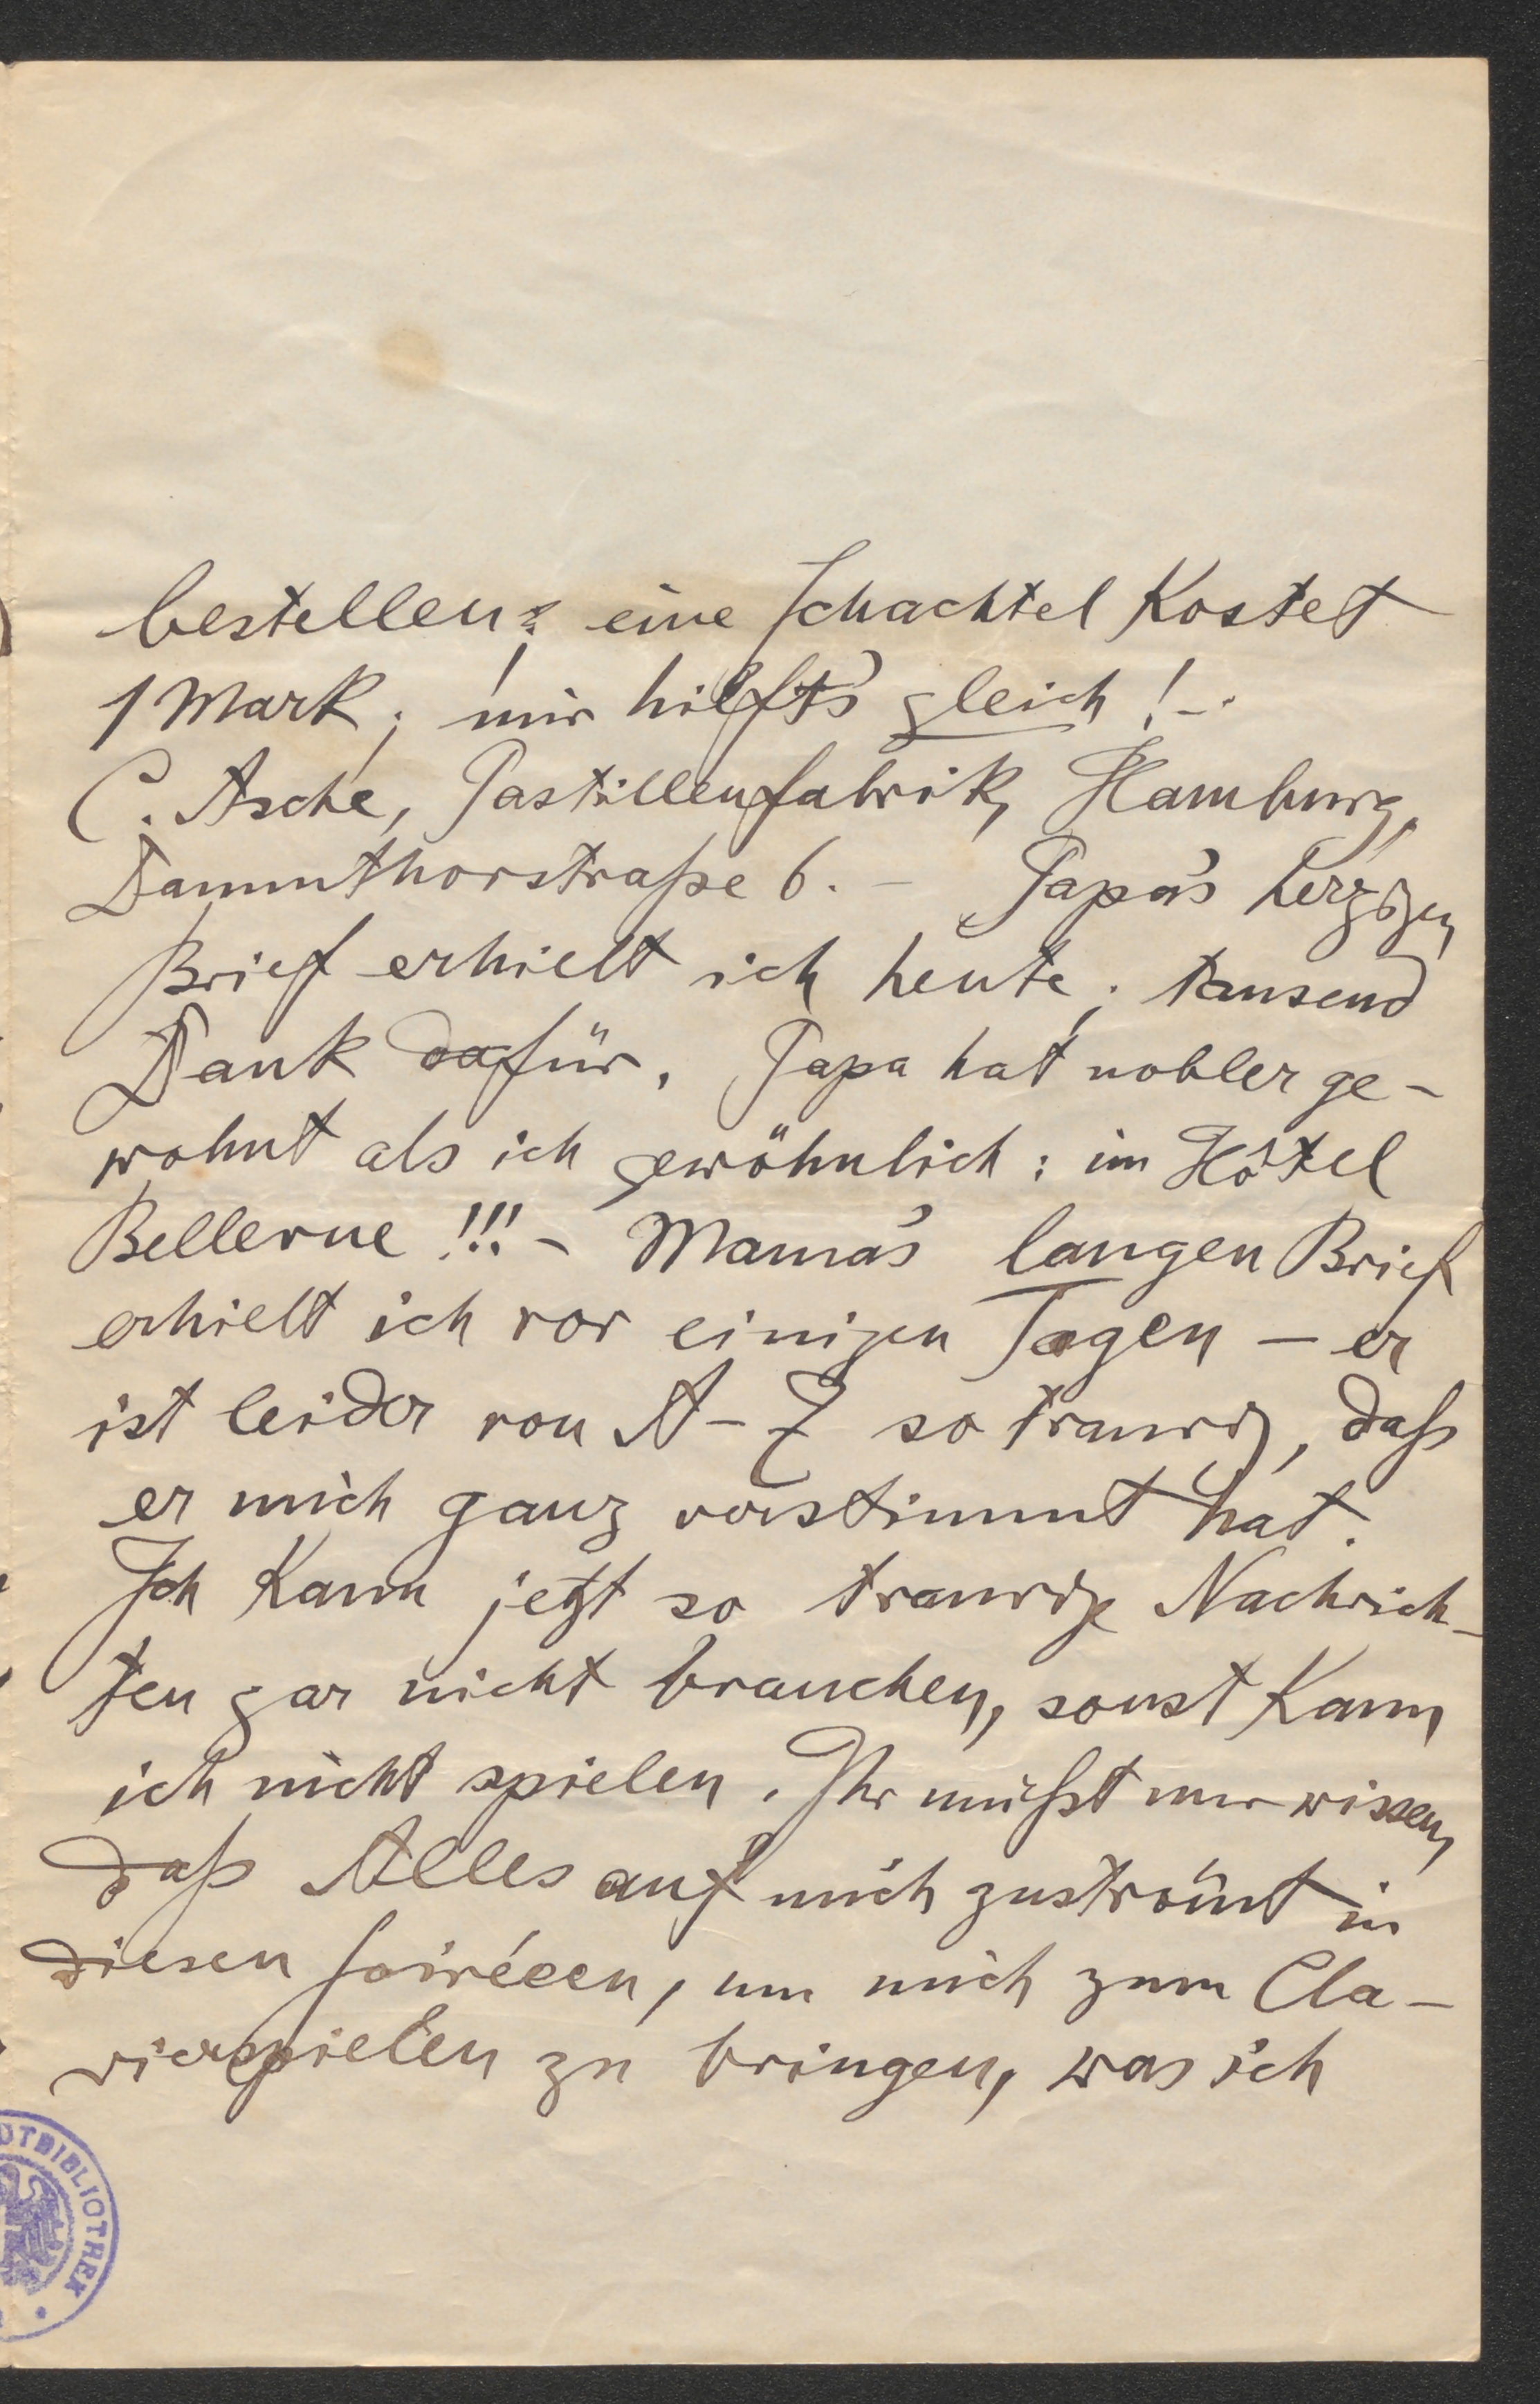 bestellen; eine Schachtel kostet
1 Mark; mir hilft's gleich! –.
C. Asche, Pastillenfabrik, Hamburg,
Dammthorstraße 6. – Papa's herzigen
Brief erhielt ich heute; tausend
Dank dafür. Papa hat nobler ge-
wohnt als ich gewöhnlich: im Hôtel
Bellevue!!! – Mama's langen Brief
erhielt ich vor einigen Tagen – er
ist leider von A – Z so traurig, daß
er mich ganz verstimmt hat.
Ich kann jetzt so traurige Nachrich-
ten gar nicht brauchen, sonst kann
ich nicht spielen. Ihr müßt nur wissen,
daß Alles auf mich zuströmt in
diesen Soiréeen, um mich zum Cla-
vierspielen zu bringen, was ich
DTBIBLIOTHEK